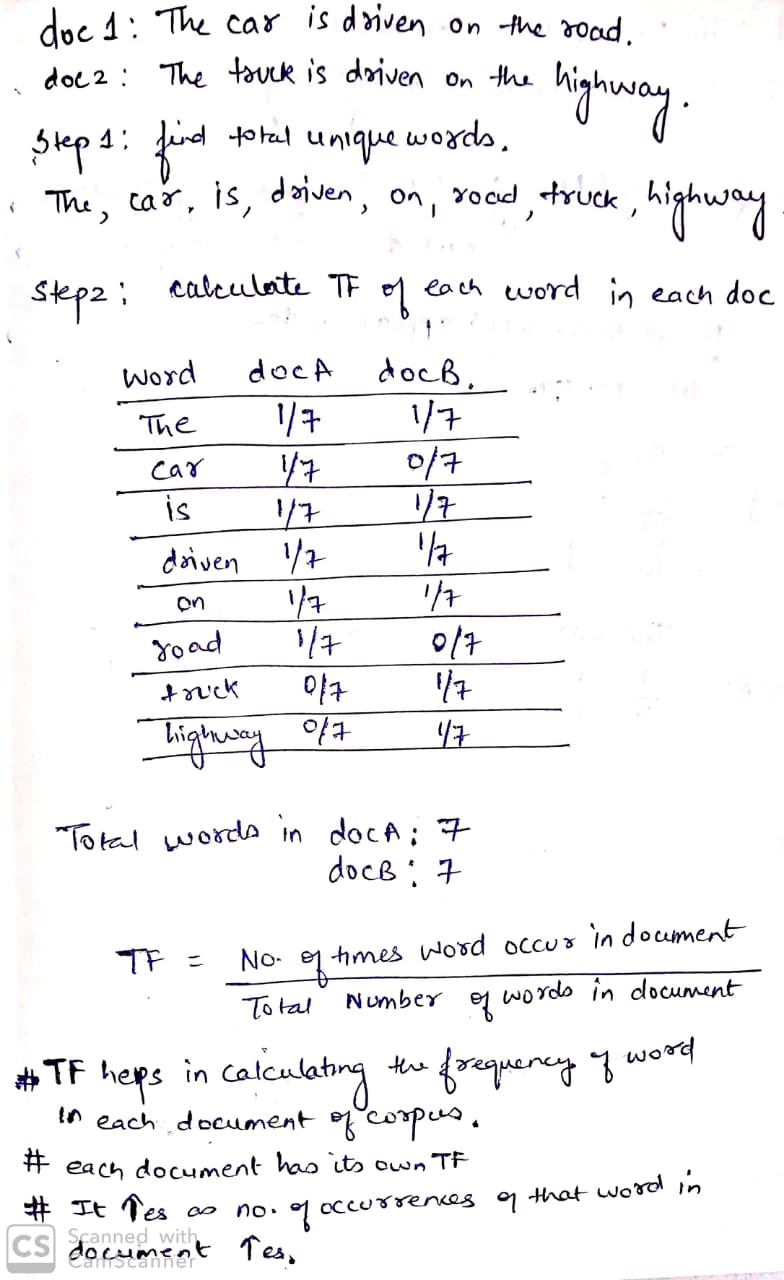 doc 1: The car is driven on the road.
doc2: The truck is driven on the highway.
Step 1: find total unique words.
The, car, is, driven, on, road, truck, highway
Step2: calculate TF of each word in each doc
Word docA docB.
The 1/7 1/7
car 1/7 0/7
is 1/7 1/7
driven 1/7 1/7
on 1/7 1/7
road 1/7 0/7
truck 0/7 1/7
highway 0/7 1/7
Total words in docA: 7
docB: 7
TF = No. of times word occur in document
Total Number of words in document
# TF heps in calculating the frequency of word
in each document of corpus.
# each document has its own TF
# It ↑es as no. of occurrences of that word in
document ↑es.
CS Scanned with
CamScanner